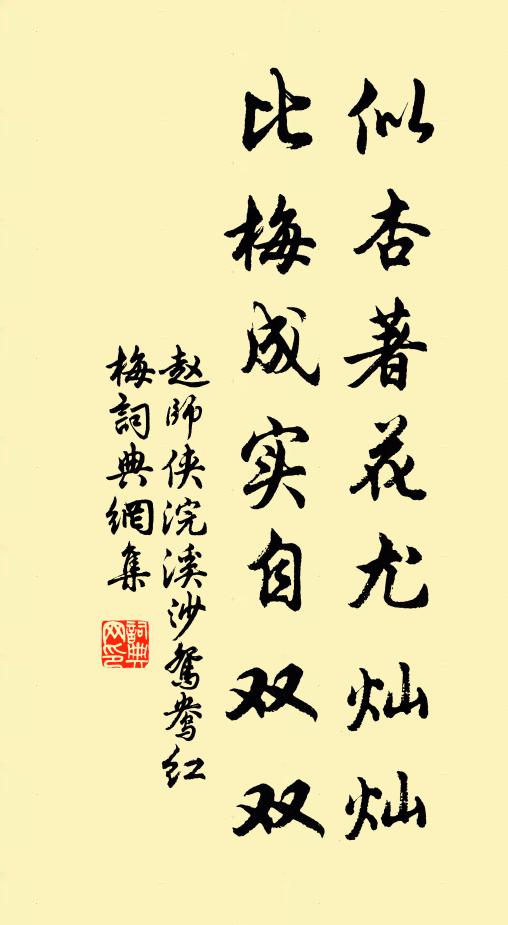 似杏著花尤灿灿
比梅成实自双双
赵师侠浣溪沙鸳鸯红
梅詞典網集
詞典
网印